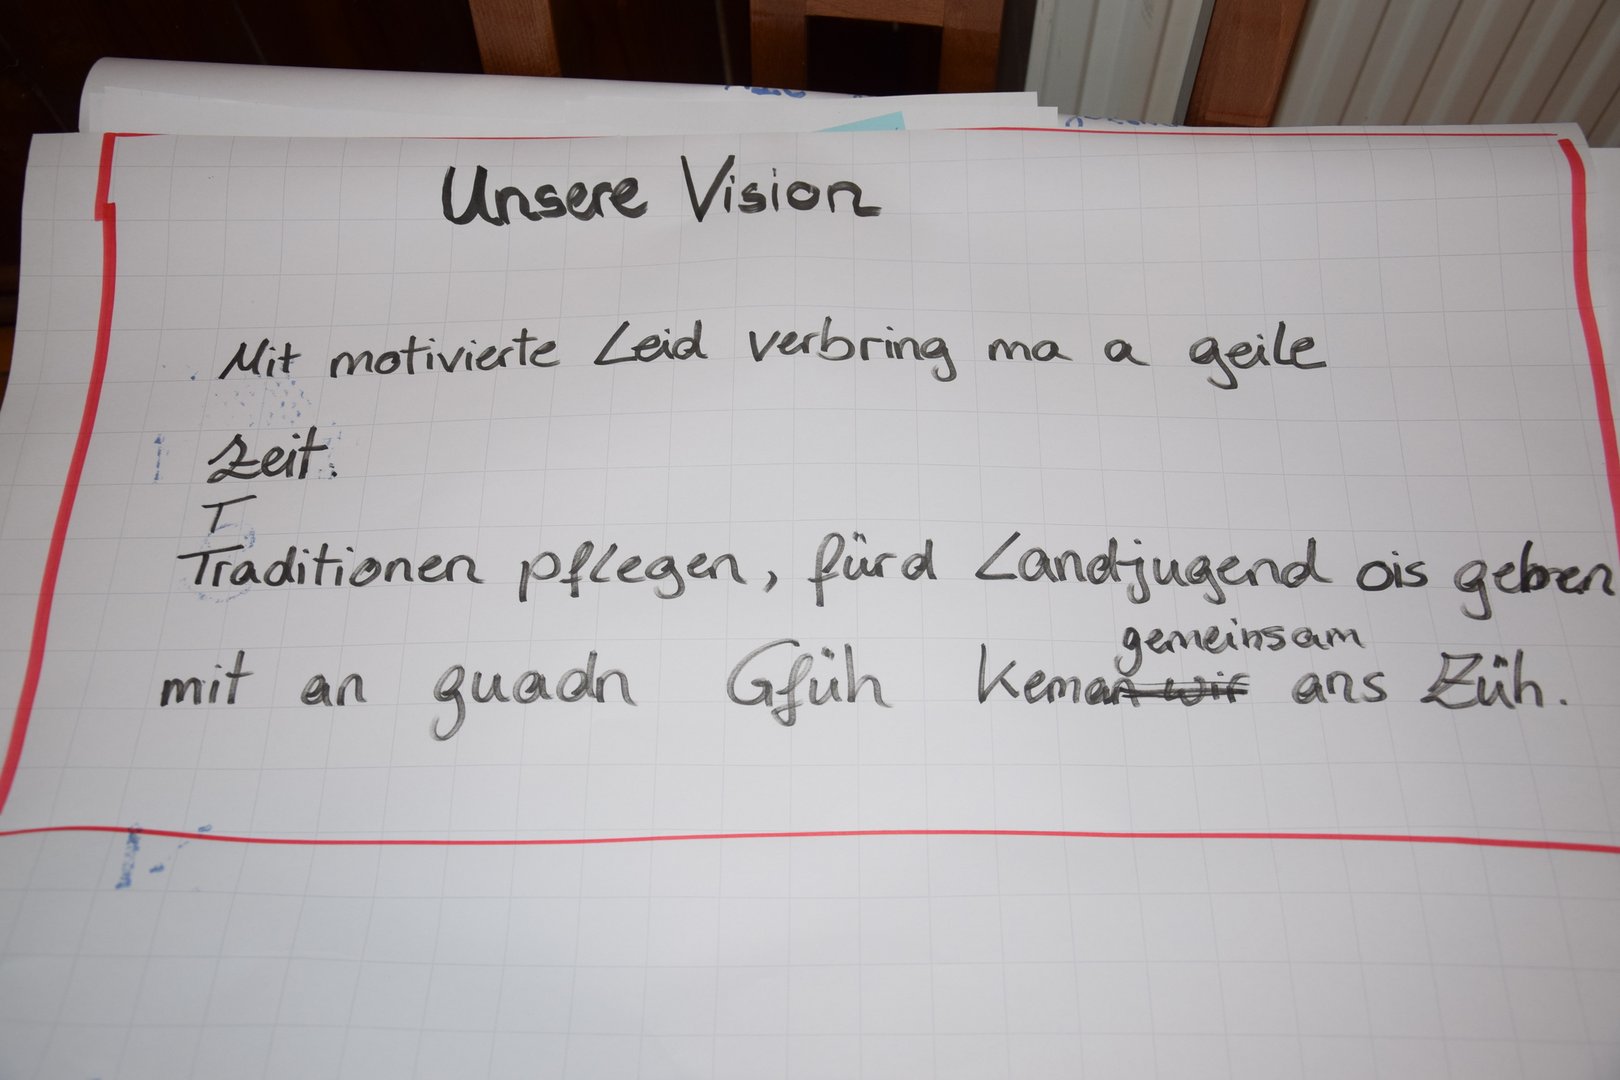 Unsere Vision
Mit motivierte Leid verbring ma a geile
Zeit.
T
Traditionen pflegen, fürd Landjugend ois geben
gemeinsam
mit an guadn Gfüh Keman wir ans Züh.